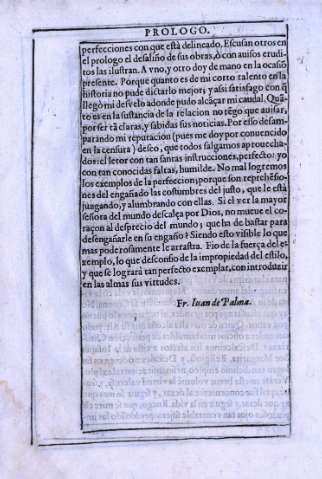 PROLOGO.
perfecciones con que està delineado. Escusan otros en
el prologo el desaliño de sus obras, ò con auisos erudi-
tos las ilustran. A vno, y otro doy de mano en la ocasiō
presente. Porque quanto es de mi corto talento en la
historia no pude dictarlo mejor; y assi satisfago con q̃
llegò mi desvelo adonde pudo alcāçar mi caudal. Quā-
to es en la sustancia de la relacion no tēgo que auisar,
por ser tā claras, y sabidas sus noticias. Por esso desam-
parando mi reputacion (pues me doy por conuencido
en la censura) deseo, que todos salgamos aprouecha-
dos: el letor con tan santas instrucciones, perfecto: yo
con tan conocidas faltas, humilde. No mal logremos
los exemplos de la perfeccion; porque son reprehēsio-
nes del engañado las costumbres del justo, que le està
juzgando, y alumbrando con ellas. Si el ver la mayor
señora del mundo descalça por Dios, no mueue el co-
raçon al desprecio del mundo; que ha de bastar para
desengañarle en su engaño? Siendo esto visible lo que
mas poderosamente le arrastra. Fio de la fuerça del e-
xemplo, lo que desconfio de la impropiedad del estilo,
y que se lograrà tan perfecto exemplar, con introduzir
en las almas sus virtudes.
Fr. Iuan de Palma.